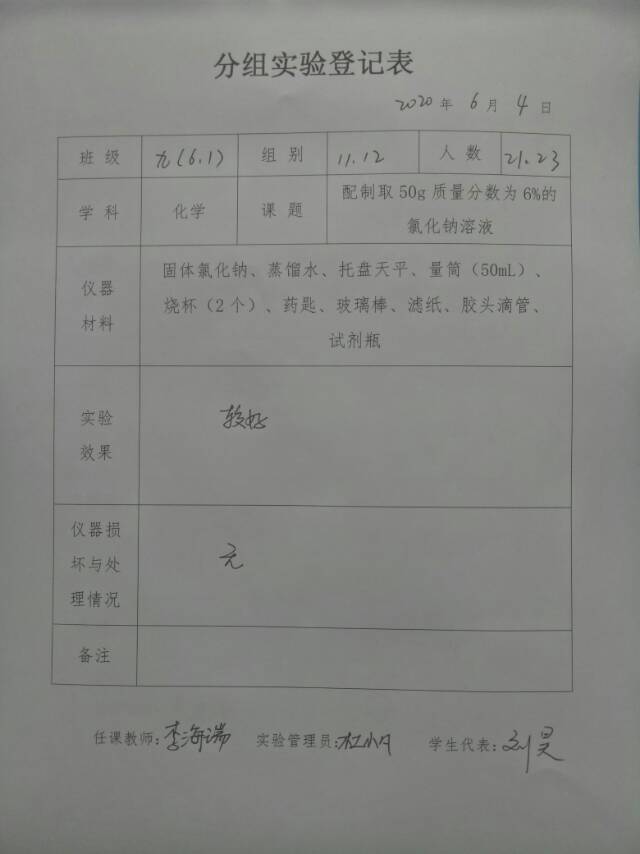 分组实验登记表
2020年6月4日
班级 九(6.1) 组别 11.12 人数 21.23
学科 化学 课题 配制取50g质量分数为6%的
氯化钠溶液
仪器
材料
固体氯化钠、蒸馏水、托盘天平、量筒（50mL）、
烧杯（2个）、药匙、玻璃棒、滤纸、胶头滴管、
试剂瓶
实验
效果
较好
仪器损
坏与处
理情况
无
备注
任课教师：李海瑞 实验管理员： 学生代表：刘昊